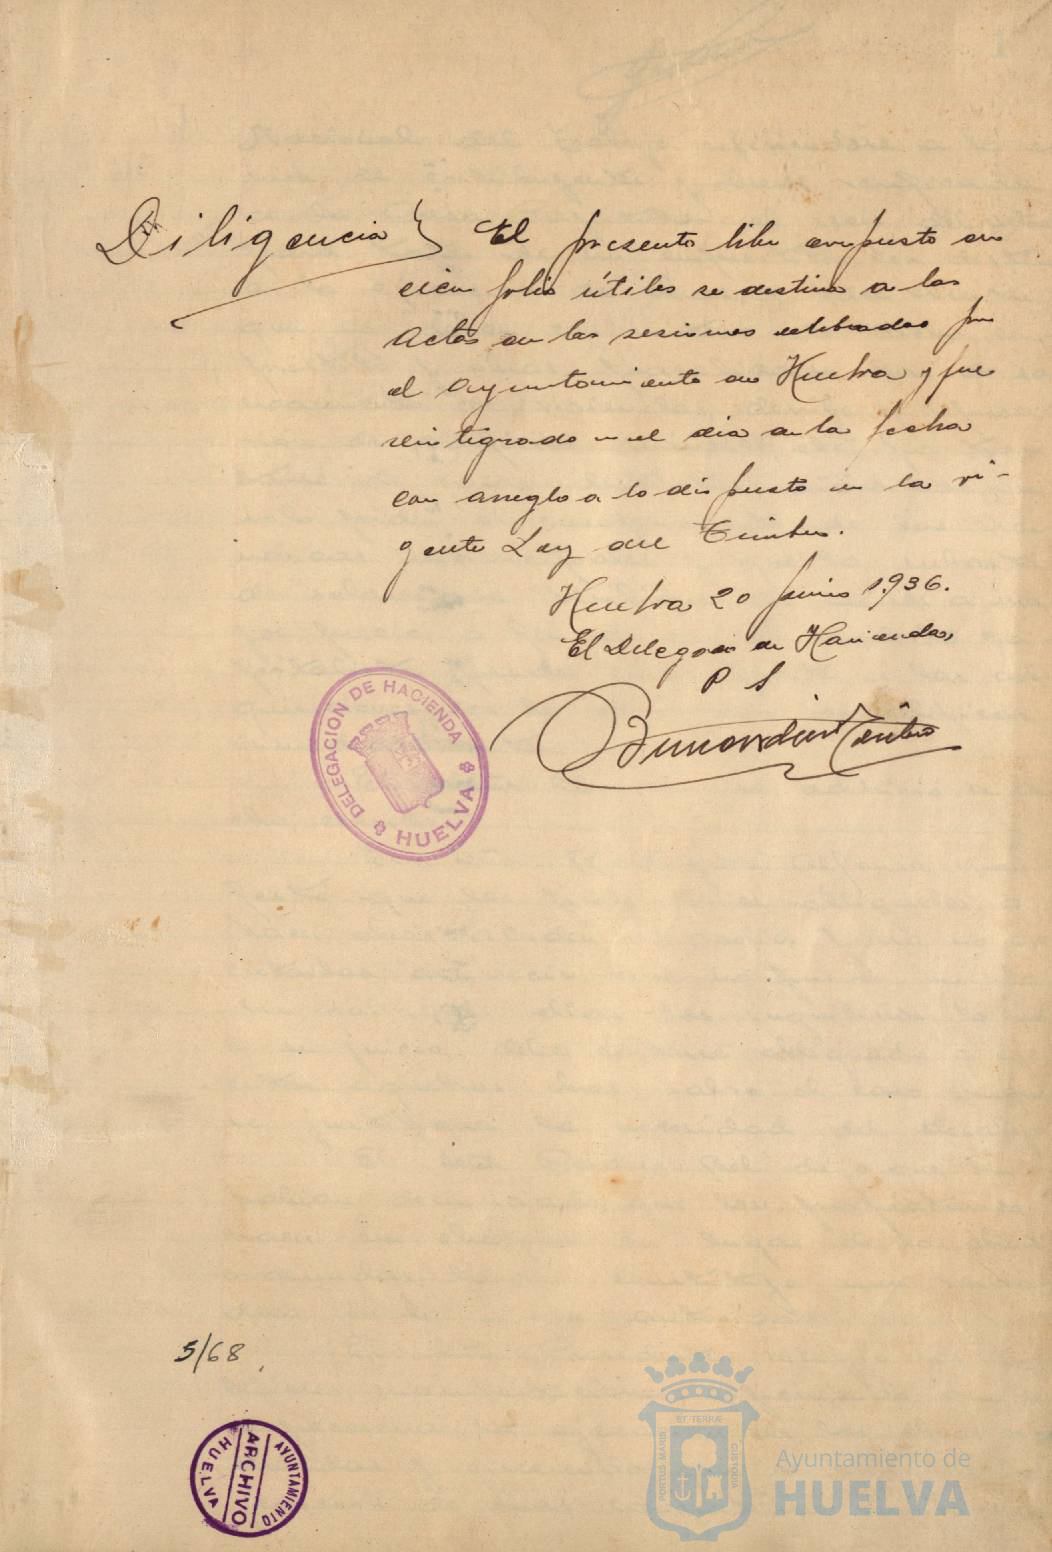 Diligencia } El presente libro compuesto en
cien folios útiles se destina a las
Actas de las sesiones celebradas por
el Ayuntamiento de Huelva y fue
reintegrado en el dia de la fecha
con arreglo a lo dispuesto en la vi-
gente Ley del Timbre.
Huelva 20 Junio 1.936.
El Delegado de Hacienda,
P S
DELEGACION DE HACIENDA
HUELVA
5/68
AYUNTAMIENTO
ARCHIVO
HUELVA
PORTUS MARIS ET TERRÆ CUSTODIA
Ayuntamiento de
HUELVA